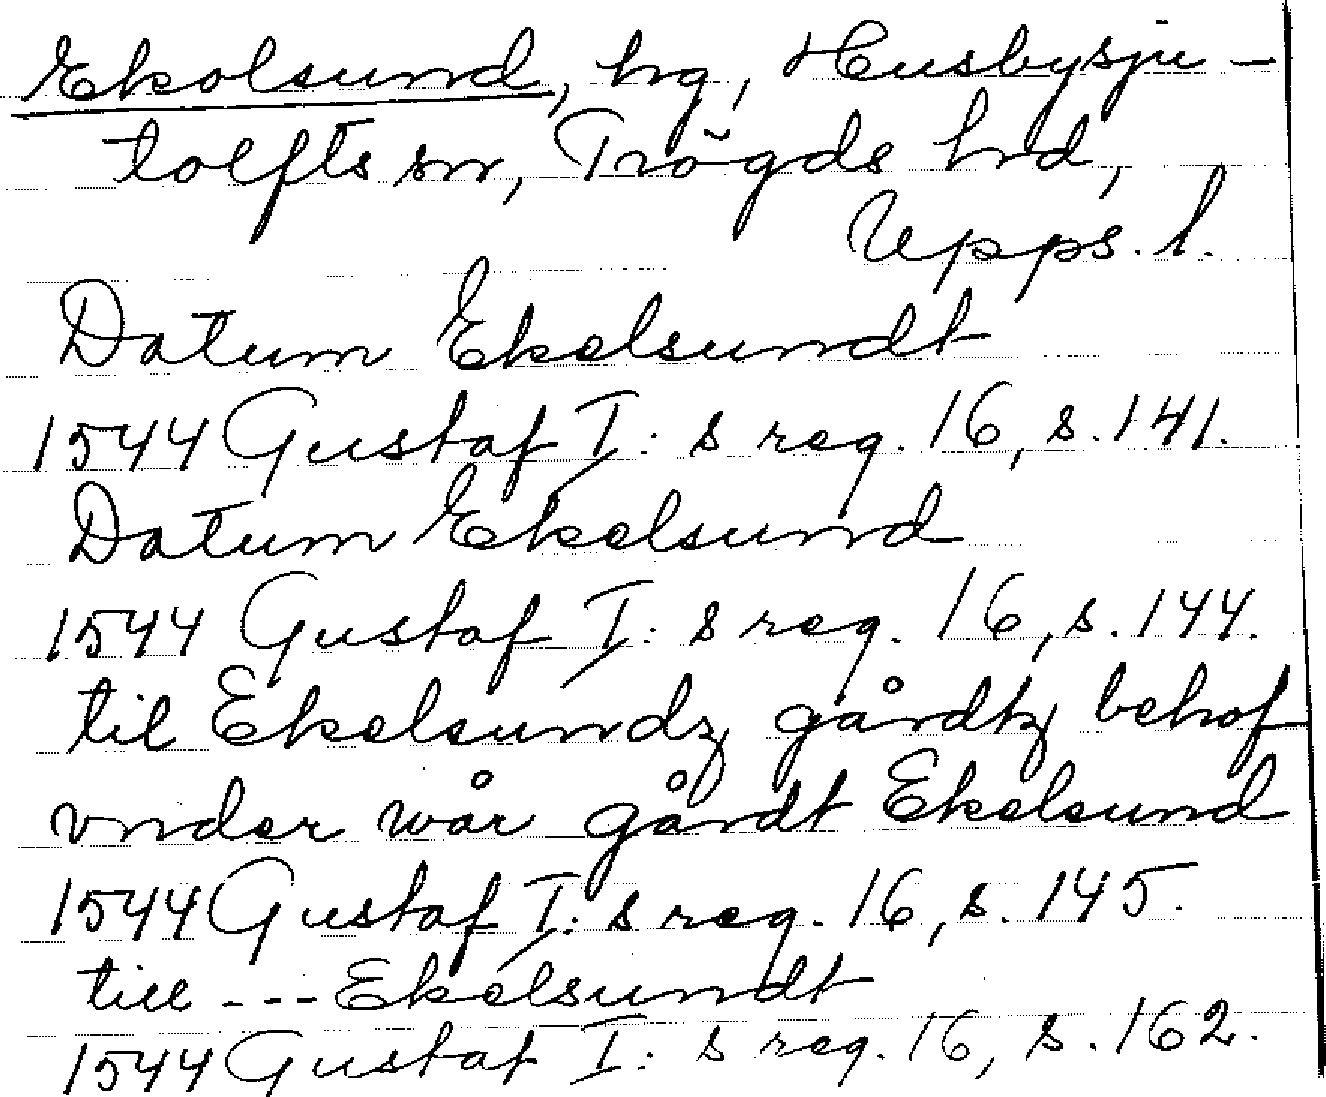 Ekolsund, hg, Husbysju-
tolfts sn, Trögds hd,
Upps. l.
Datum Ekelsundt
1544 Gustaf I: s reg. 16, s. 141.
Datum Ekelsund
1544 Gustaf I: s reg. 16, s. 144.
til Ekelsundz gårdtz behof
vnder wår gårdt Ekelsund
1544 Gustaf I: s reg. 16, s. 145.
till --- Ekelsundt
1544 Gustaf I: s reg. 16, s. 162.